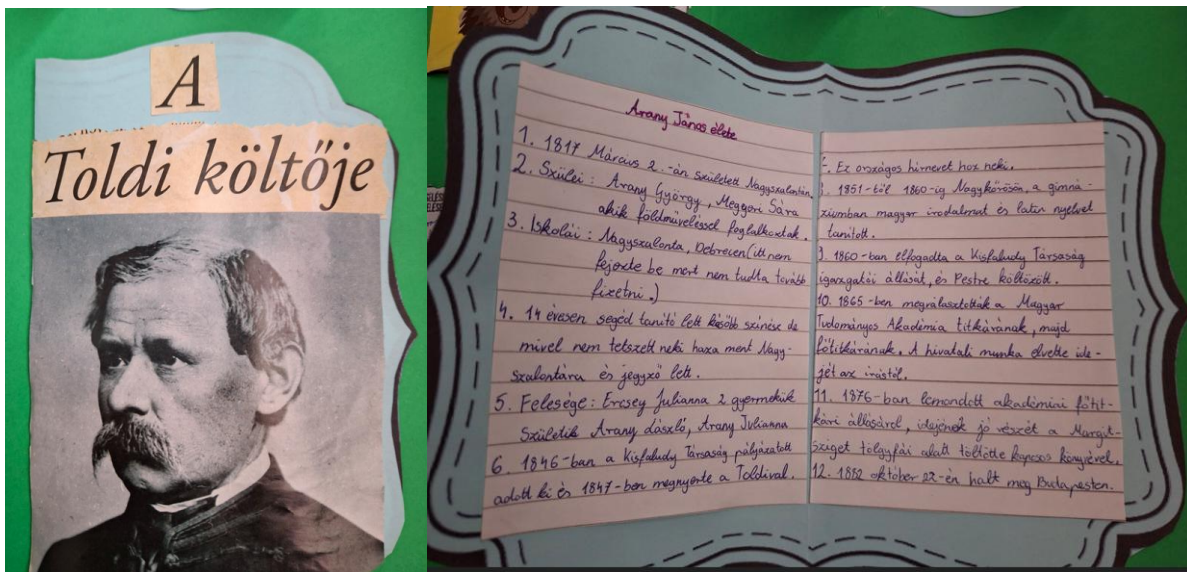 A
Toldi költője
Arany János élete
1. 1817 Március 2.-án született Nagyszalontán
2. Szülei: Arany György, Megyeri Sára
akik földműveléssel foglalkoztak.
3. Iskolái: Nagyszalonta, Debrecen (itt nem
fejezte be mert nem tudta tovább
fizetni.)
4. 14 évesen segéd tanító lett később színész de
mivel nem tetszett neki haza ment Nagy-
szalontára és jegyző lett.
5. Felesége: Ercsey Julianna 2 gyermekük
születik Arany László, Arany Julianna
6. 1846-ban a Kisfaludy Társaság pályázatott
adott ki és 1847-ben megnyerte a Toldival.
Ez országos hírnevet hoz neki.
1851-től 1860-ig Nagykőrösön, a gimná-
ziumban magyar irodalmat és latin nyelvet
tanított.
9. 1860-ban elfogadta a Kisfaludy Társaság
igazgatói állását, és Pestre költözött.
10. 1865-ben megválasztották a Magyar
Tudományos Akadémia titkárának, majd
főtitkárának. A hivatali munka elvette ide-
jét az írástól.
11. 1876-ban lemondott akadémiai főtit-
kári állásáról, idejének jó részét a Margit-
sziget tölgyfái alatt töltötte kapcsos könyvével.
12. 1882 október 22-én halt meg Budapesten.